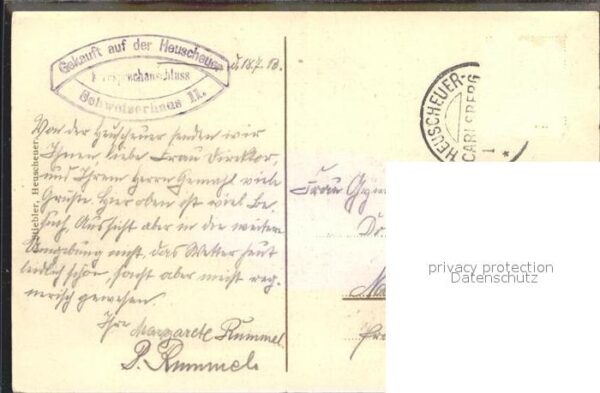 Gekauft auf der Heuscheuer
Fernsprechanschluss
Schweizerhaus II.
d. 18.7. 13.
Von der Heuscheuer senden wir
Ihnen, liebe Frau Direktor,
und Ihrem Herrn Gemahl viele
Grüße. Hier oben ist viel Be-
such, Aussicht aber in die weitere
Umgebung nicht, das Wetter heut
leidlich schön, sonst aber meist reg-
nerisch gewesen.
Ihre Margarete Rummel.
P. Rummel.
Stiebler, Heuscheuer
HEUSCHEUER-
CARLSBERG
Frau Gym
privacy protection
Datenschutz